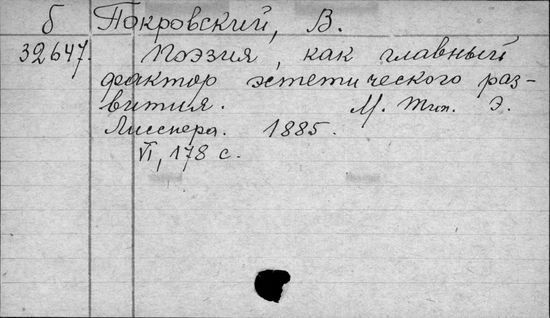 б Покровский, В.
32647. Поэзия, как главный
фактор эстетического раз-
вития. М. Тип. Э.
Лисснера. 1885.
VI, 178 с.